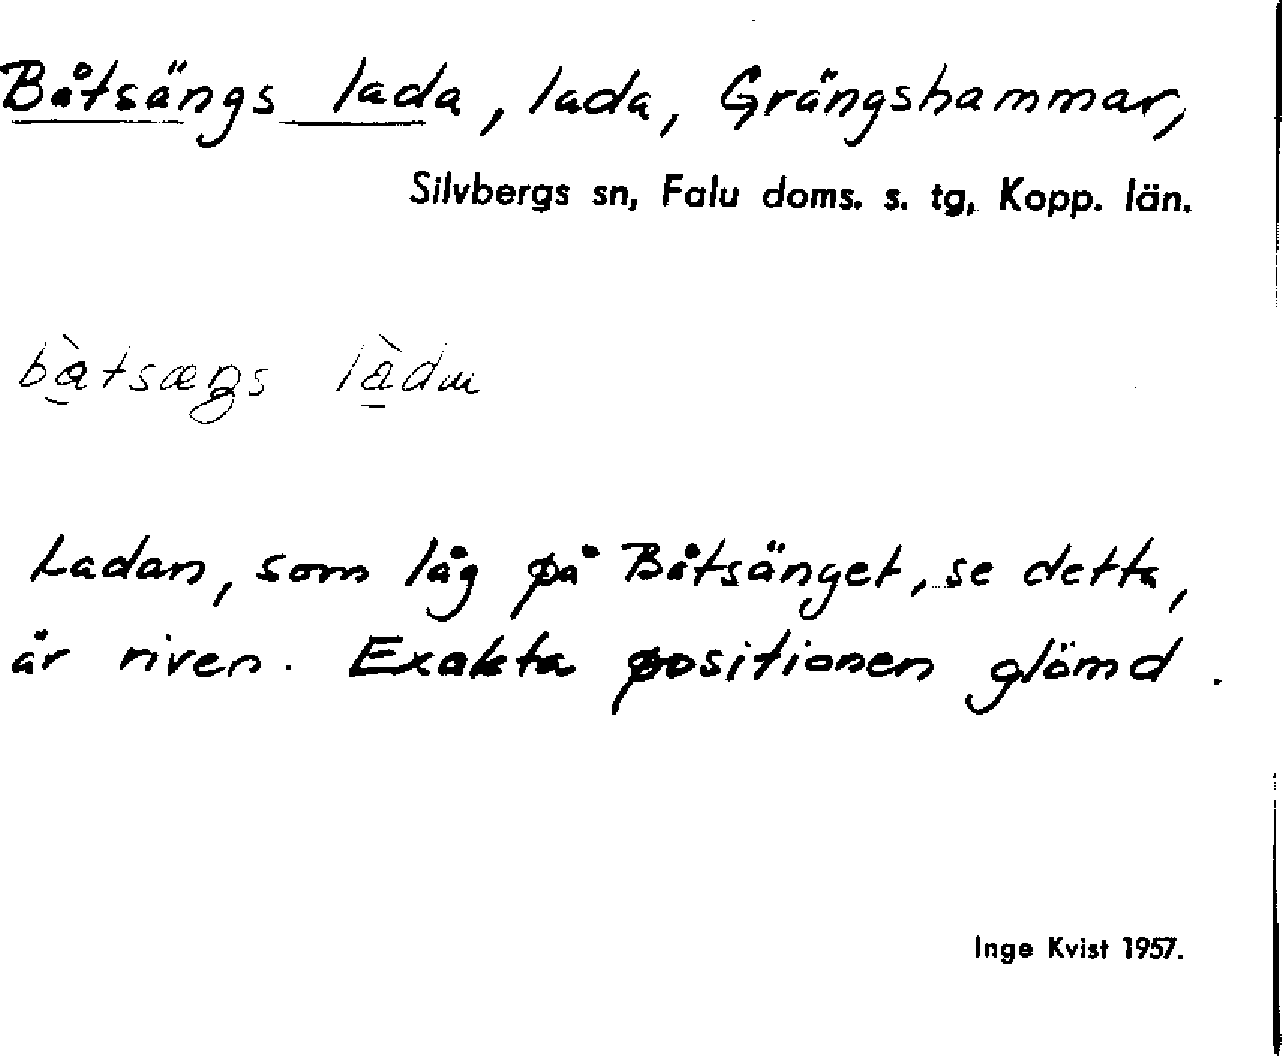 Båtsängs lada, lada, Grängshammar,
Silvbergs sn, Falu doms. s. tg, Kopp. län.
Ladan, som låg på Båtsänget, se detta,
är riven. Exakta positionen glömd.
Inge Kvist 1957.